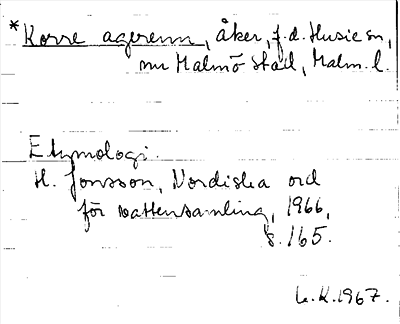 *Korre agerenn, åker, f.d. Husie sn,
nu Malmö stad, Malm. l.
Etymologi.
H. Jonsson, Nordiska ord
för vattensamling, 1966,
s. 165.
L.K. 1967.